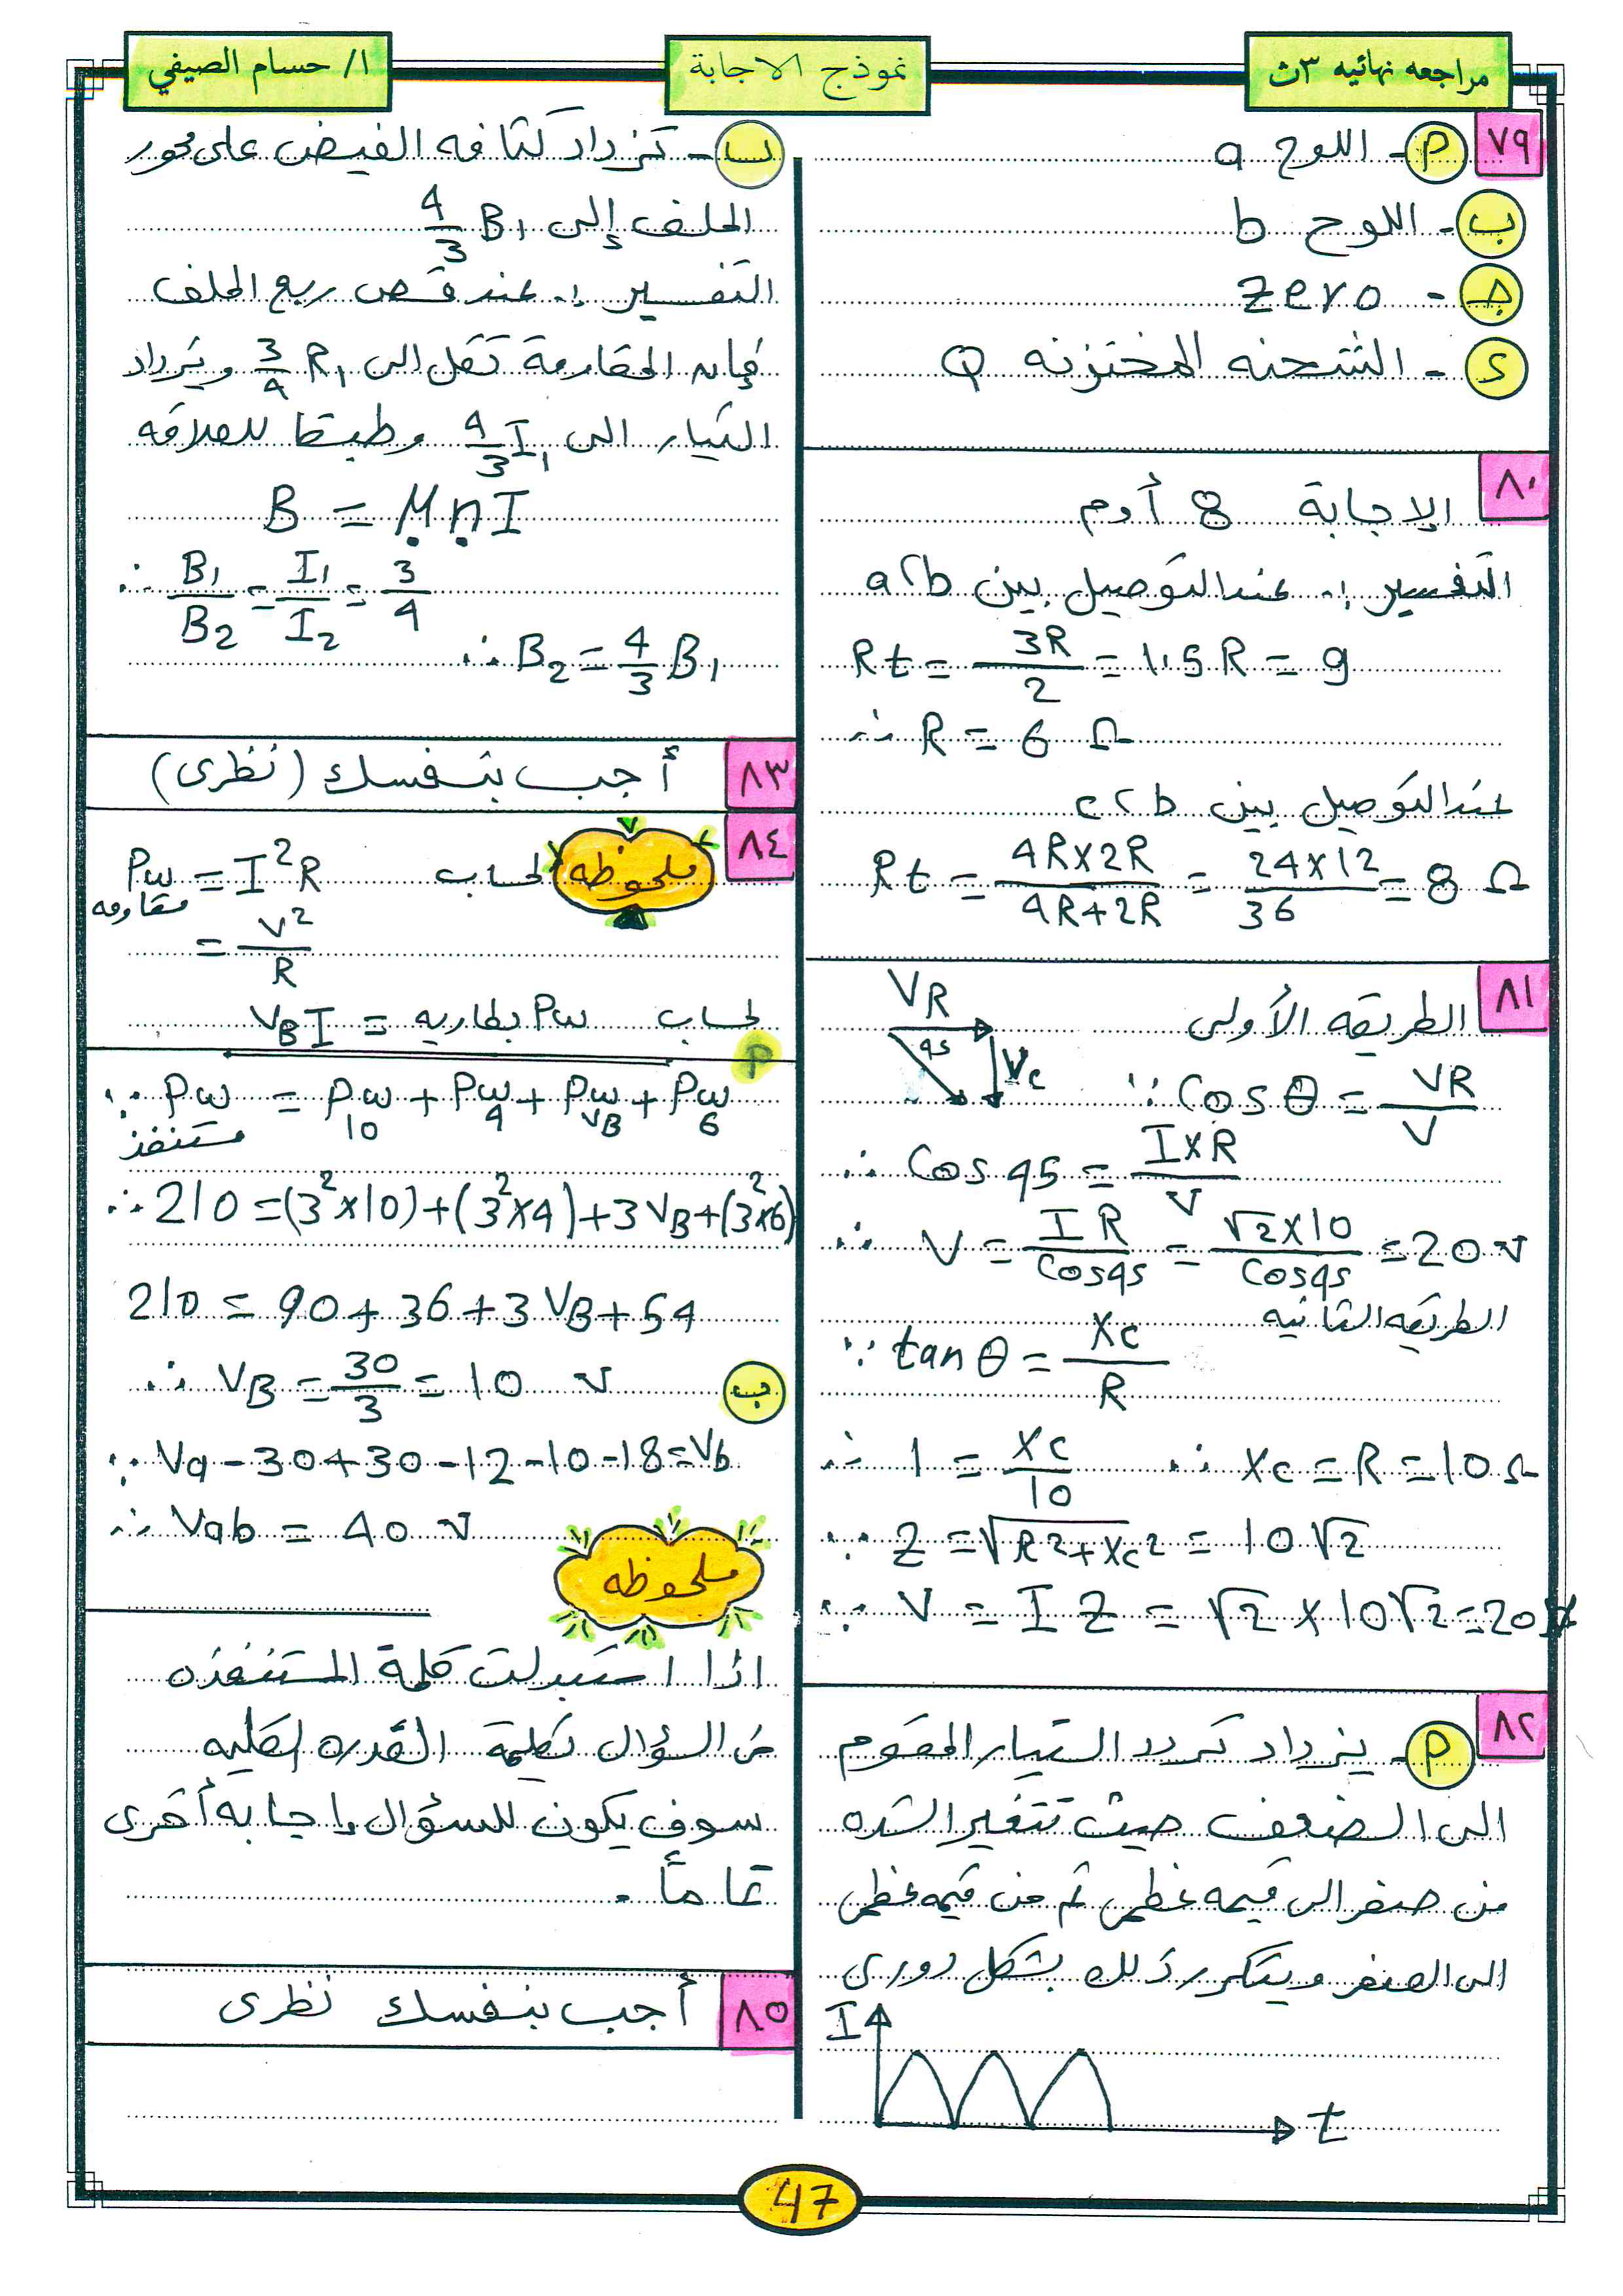 مراجعه نهائيه ٣ث
نموذج الاجابة
ا/ حسام الصيفي
٧٩
أ - اللوح a
ب - اللوح b
جـ - zero
د - الشحنه المختزنه Q
٨٠
الاجابة 8 أوم
التفسير :- عند التوصيل بين a ، b
Rt = 3R/2 = 1.5 R = 9
∴ R = 6 Ω
عند التوصيل بين c ، b
Rt = 4R×2R/4R+2R = 24×12/36 = 8 Ω
٨١
الطريقه الأولى
VR
45
Vc
∵ Cos θ = VR/V
∴ Cos 45 = I×R/V
∴ V = I R/Cos45 = √2×10/Cos45 = 20 v
الطريقه الثانيه
∵ tan θ = Xc/R
∴ 1 = Xc/10 ∴ Xc = R = 10 Ω
∵ Z = √R²+Xc² = 10√2
∵ V = I Z = √2 × 10√2 = 20 v
٨٢
أ - يزداد تردد التيار المقوم
الى الضعف حيث تتغير الشده
من صفر الى قيمه عظمى ثم من قيمه عظمى
الى الصفر ويتكرر ذلك بشكل دورى
I
t
ب - تزداد كثافه الفيض على محور
الملف إلى 4/3 B1
التفسير :- عند قص ربع الملف
فإن المقاومة تقل الى 3/4 R1 ويزداد
التيار الى 4/3 I1 وطبقا للعلاقه
B = μ n I
∴ B1/B2 = I1/I2 = 3/4
∴ B2 = 4/3 B1
٨٣
أجب بنفسك (نظرى)
٨٤
ملحوظه
لحساب Pw مقاومه = I²R
= V²/R
لحساب Pw بطاريه = VB I
أ
∵ Pw مستنفذ = Pw 10 + Pw 4 + Pw VB + Pw 6
∴ 210 = (3²×10) + (3²×4) + 3 VB + (3²×6)
210 = 90 + 36 + 3 VB + 54
∴ VB = 30/3 = 10 v
ب
∵ Va - 30 + 30 - 12 - 10 - 18 = Vb
∴ Vab = 40 v
ملحوظه
اذا استبدلت كلمة المستنفذه
من السؤال بكلمة القدره الكليه
سوف يكون للسؤال إجابه أخرى
تماماً .
٨٥
أجب بنفسك نظرى
47